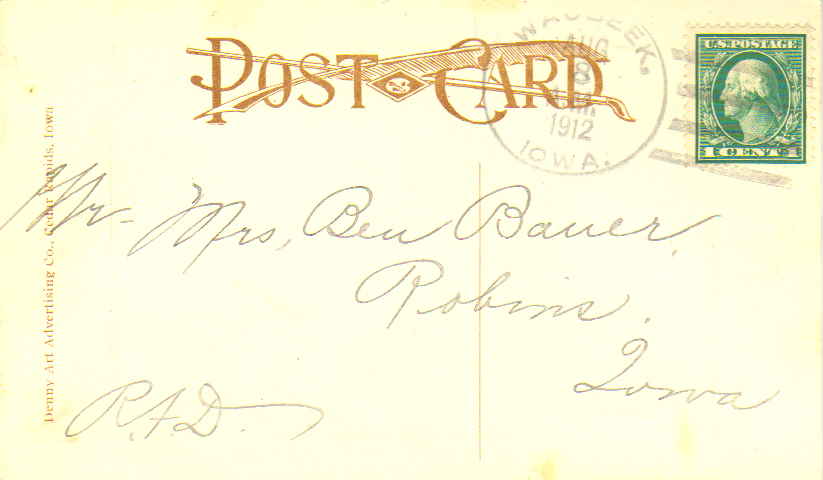 POST CARD
WAUBEEK,
AUG
8
A.M.
1912
IOWA.
U.S. POSTAGE
1 CENT 1
Mr- Mrs, Ben Bauer,
Robins,
Iowa
R.F.D.
Denny Art Advertising Co., Cedar Rapids, Iowa